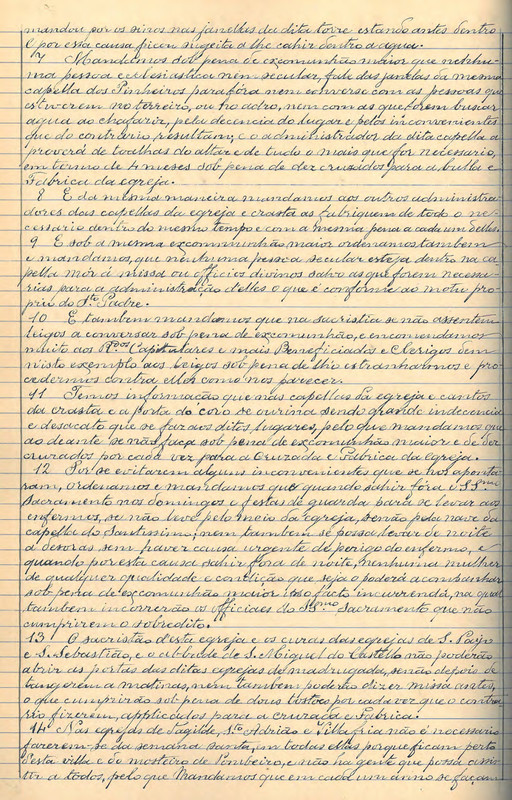 mandou por os sinos nas janellas da dita torre estando antes dentro
e por essa causa ficou sugeita a lhe cahir dentro a agua.
7 Mandamos sob pena de excomunhão maior que nenhu-
ma pessoa ecclesiastica nem secular, fale das janelas da mesma
capella dos Pinheiros para fóra nem converse com as pessoas que
estiverem no terreiro, ou no adro, nem com as que forem buscar
agua ao chafariz, pela decencia do lugar e pelos inconvenientes
que do contrario resultam; e o administrador da dita capella a
proverá de toalhas do altar e de tudo o mais que for necessario,
em termo de 4 meses sob pena de dez cruzados para a bulla e
Fabrica da egreja.
8 E da mesma maneira mandamos aos outros administra-
dores das capellas da egreja e crasta as fabriquem de todo o ne-
cessario dentro do mesmo tempo e com a mesma pena a cada um delles.
9 E sob a mesma excomunhão maior ordenamos tambem
e mandamos, que nenhuma pessoa secular esteja dentro na ca-
pella mór á missa ou officios divinos salvo as que forem necessa-
rias para a administração delles o que é conforme ao motu pro-
prio do Sto Padre.
10 E tambem mandamos que na sacristia se não assentem
leigos a conversar sob pena de excomunhão, e encomendamos
muito aos Rdos Capitulares e mais Beneficiados e Clerigos dem
nisto exemplo aos leigos sob pena de lho estranharmos e pro-
cedermos contra elles como nos parecer.
11 Temos informação que nas capellas da egreja e cantos
da crasta e a porta do coro se ourina sendo grande indecencia
e desacato que se faz aos ditos lugares, pelo que mandamos que
ao deante se não faça sob pena de excomunhão maior e de dez
cruzados por cada vez para a Cruzada e Fabrica da egreja.
12 Por se evitarem alguns inconvenientes que se nos aponta-
ram, ordenamos e mandamos que quando sahir fóra o SSmo
Sacramento nos domingos e festas de guarda para se levar aos
enfermos, se não leve pelo meio da egreja, senão pela nave da
capella do Santissimo; nem tambem se possa levar de noite
a desoras sem haver causa urgente de perigo do enfermo, e
quando por esta causa sahir fóra de noite, nenhuma mulher
de qualquer qualidade e condição que seja o poderá acompanhar
sob pena de excomunhão maior ipso facto incurrenda, na qual
tambem incorrerão os officiaes do SSmo Sacramento que não
cumprirem o sobredito.
13 O sacristão desta egreja e os curas das egrejas de S. Paio
e S. Sebastião, e o abbade de S. Miguel do Castello não poderão
abrir as portas das ditas egrejas de madrugada, senão depois de
tangerem a matinas, nem tambem poderão dizer missa antes,
o que cumprirão sob pena de dous tostões por cada vez que o contra-
rio fizerem, applicados para a cruzada e Fabrica.
14 Nas egrejas de Tagilde, Sto Adrião e Villa fria não é necessario
fazerem-se da semana santa, em todas ellas porque ficam perto
desta villa e do mosteiro de Pombeiro, e não ha gente que possa assis-
tir a todos, pelo que Mandamos que em cada um anno se façam